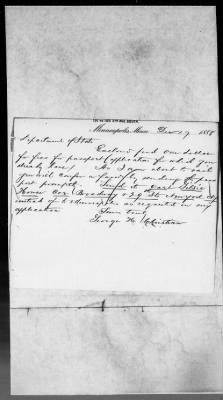 Minneapolis, Minn. Dec 19 1888
Department of State
Enclosed find one dollar
for fees for passport (application for which you
already have) As I am about to sail
you will confer a favor by sending the pass
port promptly. Send it care Gilsey
House Cor Broadway & 29 St New York City
instead of to Minneapolis as requested in my
application
Yours truly
George H. Christian